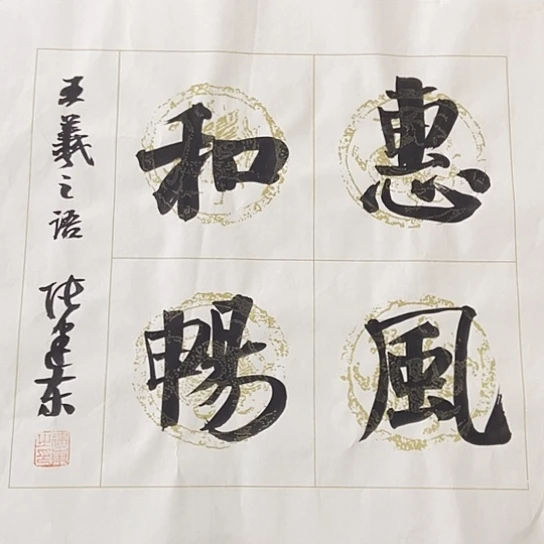 惠風
和暢
王羲之語
张建东